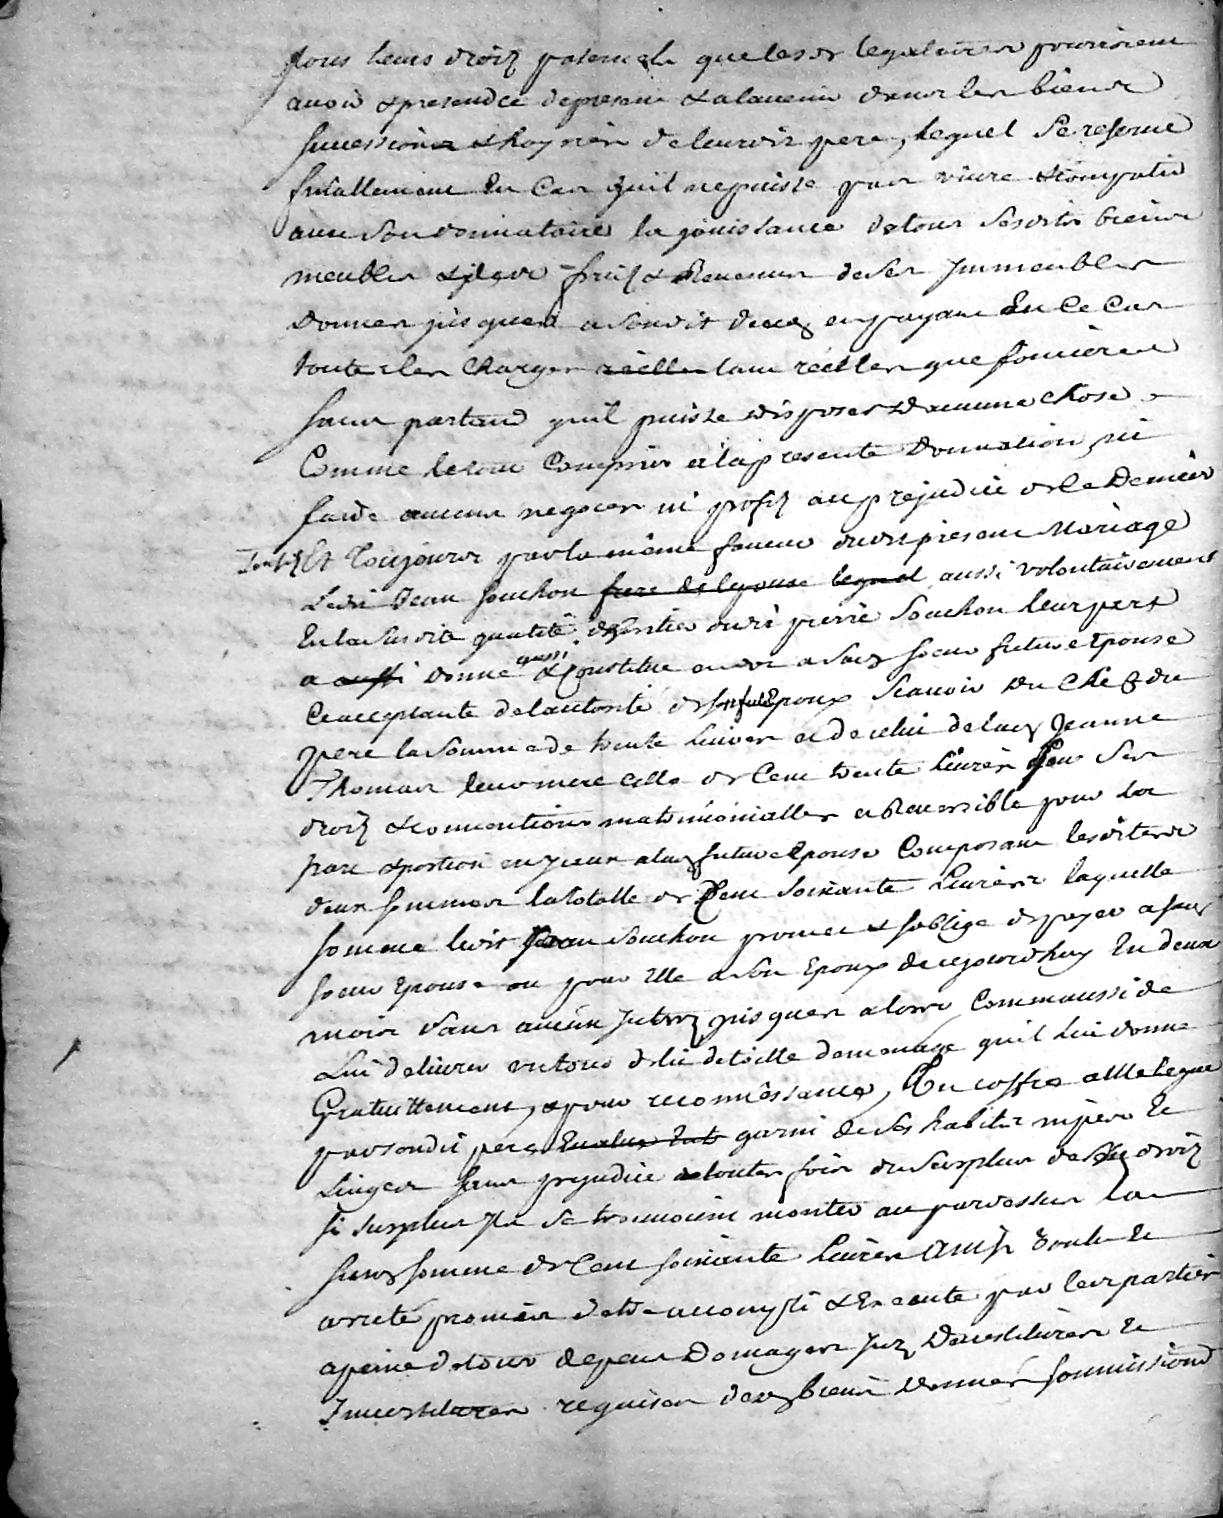 tous leurs droiz paternels que lesd legataires pouroient
avoir & pretendre depresent & alavenir dans les biens
succession & hoyrie de leurdit pere, lequel se reserve
futallement en cas quil nepuisse pas vivre & compatir
avec son donnataire la jouissance detous sesdits biens
meubles & fruiz & Revenus deses Jmmeubles
Donnes jusques a sondit deces en payant En ce Cas
toute les Charges reelles tant reelles que foncieres
sans partand quil puisse disposer Daucune chose
Comme letout Compris ala presente Donnation, ni
faire aucuns negoces ni profiz au prejudice de ce Dernier
Et Toujours par la même faveur dudit present Mariage
Ledit Jean Souchon frere de lepouse lequel aussi volontairement
En la susdite qualité dheritier dudit pierre Souchon leur pere
a aussi donné aussi & Constitue en dot a sad soeur future Epouse
Ceacceptante delautorité desd fut Epoux scavoir Du chef du
pere la somme de trente livres et de celui delad Jeanne
Thomas leur mere celle de Cent trente livres pour ses
droiz & conventions matrimonialles et Reversible pour la
part & portion en yceux alad future Epouse Composant lesdites
deux sommes latotalle de Cent soixante Livres laquelle
somme ledit Jean Souchon promet & soblige de payer a sad
soeur Epouse ou pour Elle a son Epoux decejourdhuy En deux
mois sans aucun Jnterez jusques alors Comme aussi de
Lui delivrer un tour de lit detoille demenage quil lui donne
Gratuittement, & pour reconnoissance, Un coffre a Elle legué
par sondit pere garni de ses habits nipes Et
Linges sans prejudice atoutes fois du surplus deses droiz
si surplus Jls se trouvoient monter au pardessus la
susd somme de Cent soixante livres Ainsi toute Et
arreté promis detre accompli & Execute par les parties
apeine detous depens Domages Jnz Devestitures Et
Jnvestitures requises desd biens donnes soumissions